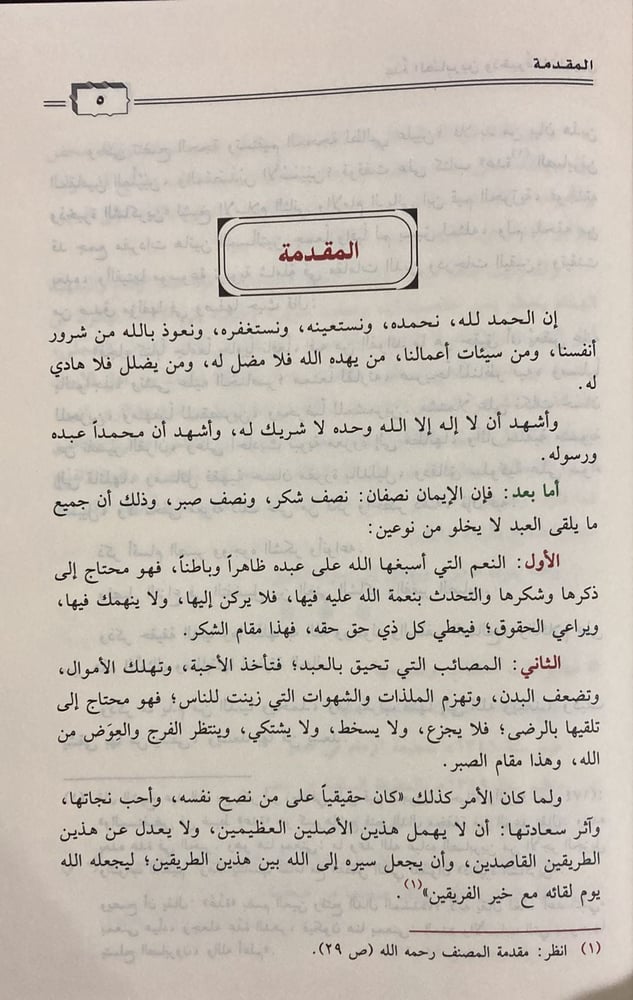 المقدمة
٥
المقدمة
إن الحمد لله، نحمده، ونستعينه، ونستغفره، ونعوذ بالله من شرور
أنفسنا، ومن سيئات أعمالنا، من يهده الله فلا مضل له، ومن يضلل فلا هادي
له.
وأشهد أن لا إله إلا الله وحده لا شريك له، وأشهد أن محمداً عبده
ورسوله.
أما بعد: فإن الإيمان نصفان: نصف شكر، ونصف صبر، وذلك أن جميع
ما يلقى العبد لا يخلو من نوعين:
الأول: النعم التي أسبغها الله على عبده ظاهراً وباطناً، فهو محتاج إلى
ذكرها وشكرها والتحدث بنعمة الله عليه فيها، فلا يركن إليها، ولا ينهمك فيها،
ويراعي الحقوق؛ فيعطي كل ذي حق حقه، فهذا مقام الشكر.
الثاني: المصائب التي تحيق بالعبد؛ فتأخذ الأحبة، وتهلك الأموال،
وتضعف البدن، وتهزم الملذات والشهوات التي زينت للناس؛ فهو محتاج إلى
تلقيها بالرضى؛ فلا يجزع، ولا يسخط، ولا يشتكي، وينتظر الفرج والعِوَض من
الله، وهذا مقام الصبر.
ولما كان الأمر كذلك «كان حقيقياً على من نصح نفسه، وأحب نجاتها،
وآثر سعادتها: أن لا يهمل هذين الأصلين العظيمين، ولا يعدل عن هذين
الطريقين القاصدين، وأن يجعل سيره إلى الله بين هذين الطريقين؛ ليجعله الله
يوم لقائه مع خير الفريقين»(١).
(١) انظر: مقدمة المصنف رحمه الله (ص ٢٩).